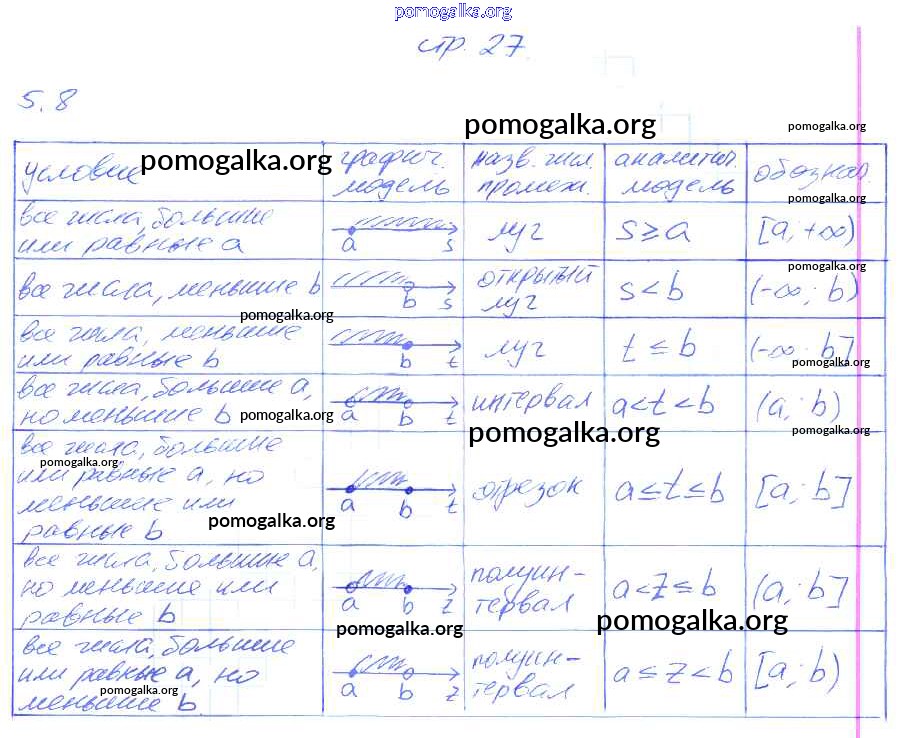 pomogalka.org
стр. 27.
5.8
pomogalka.org
pomogalka.org
условие pomogalka.org
графич. модель
назв. чил. промеж.
аналитич. модель
обознач.
pomogalka.org
все числа, большие
или равные a
a s
луч
s ≥ a
[a, +∞)
pomogalka.org
все числа, меньшие b
b s
открытый
луч
s < b
(-∞; b)
pomogalka.org
все числа, меньшие
или равные b
b t
луч
t ≤ b
(-∞; b]
pomogalka.org
все числа, большие a,
но меньшие b
pomogalka.org
a b t
интервал
a < t < b
(a; b)
pomogalka.org
pomogalka.org
все числа, большие
pomogalka.org
или равные a, но
меньшие или
равные b
pomogalka.org
a b t
отрезок
a ≤ t ≤ b
[a; b]
все числа, большие a,
но меньшие или
равные b
a b z
полуин-
тервал
a < z ≤ b
(a; b]
pomogalka.org
pomogalka.org
все числа, большие
или равные a, но
меньшие b
pomogalka.org
a b z
полуин-
тервал
a ≤ z < b
[a; b)